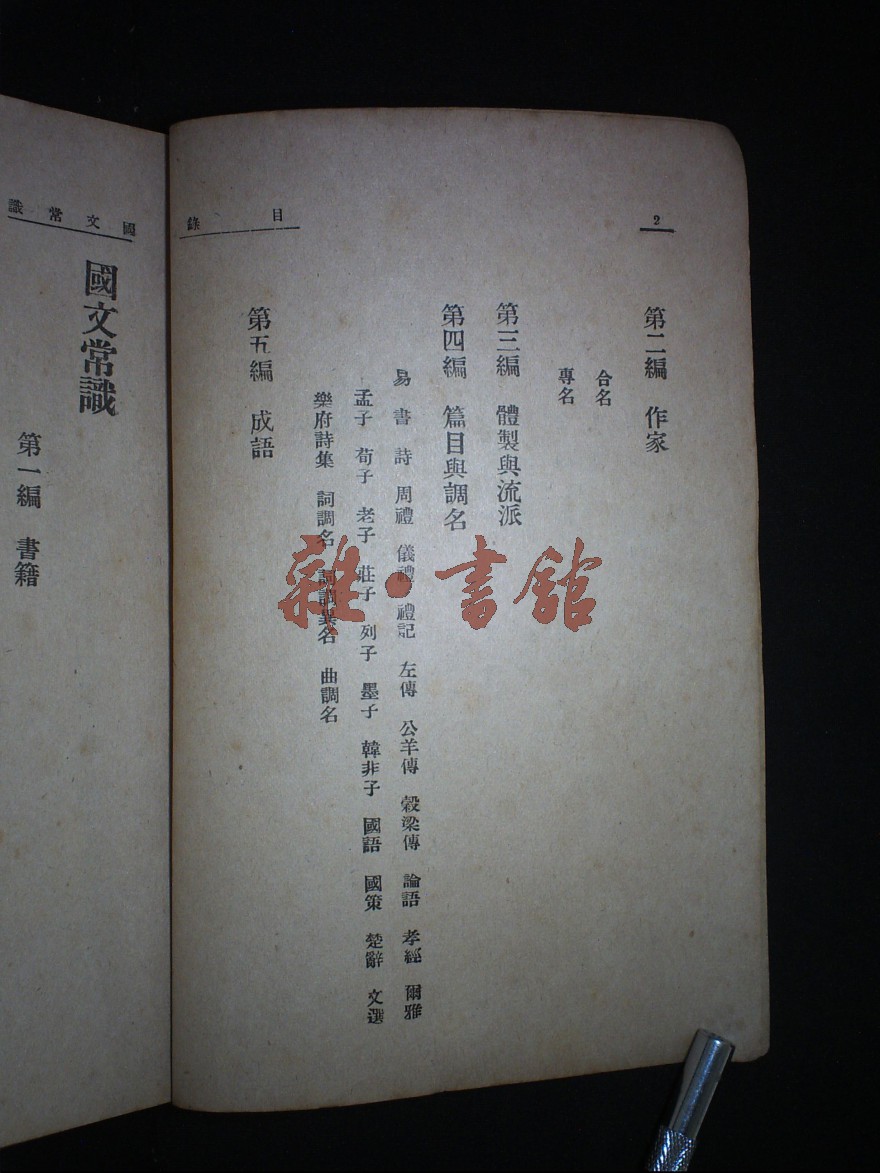 2
目錄
第二編　作家
合名
專名
第三編　體製與流派
第四編　篇目與調名
易　書　詩　周禮　儀禮　禮記　左傳　公羊傳　穀梁傳　論語　孝經　爾雅
孟子　荀子　老子　莊子　列子　墨子　韓非子　國語　國策　楚辭　文選
樂府詩集　詞調名　詞調異名　曲調名
第五編　成語
國文常識
國文常識
第一編　書籍
雜·書館